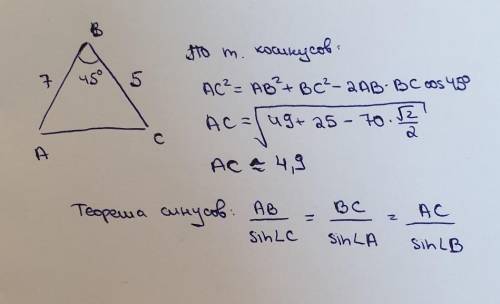 B
7
45°
5
A
C
По т. косинусов:
AC² = AB² + BC² - 2AB · BC cos45°
AC = √(49 + 25 - 70 · √2/2)
AC ≈ 4,9
Теорема синусов: AB/sin∠C = BC/sin∠A = AC/sin∠B